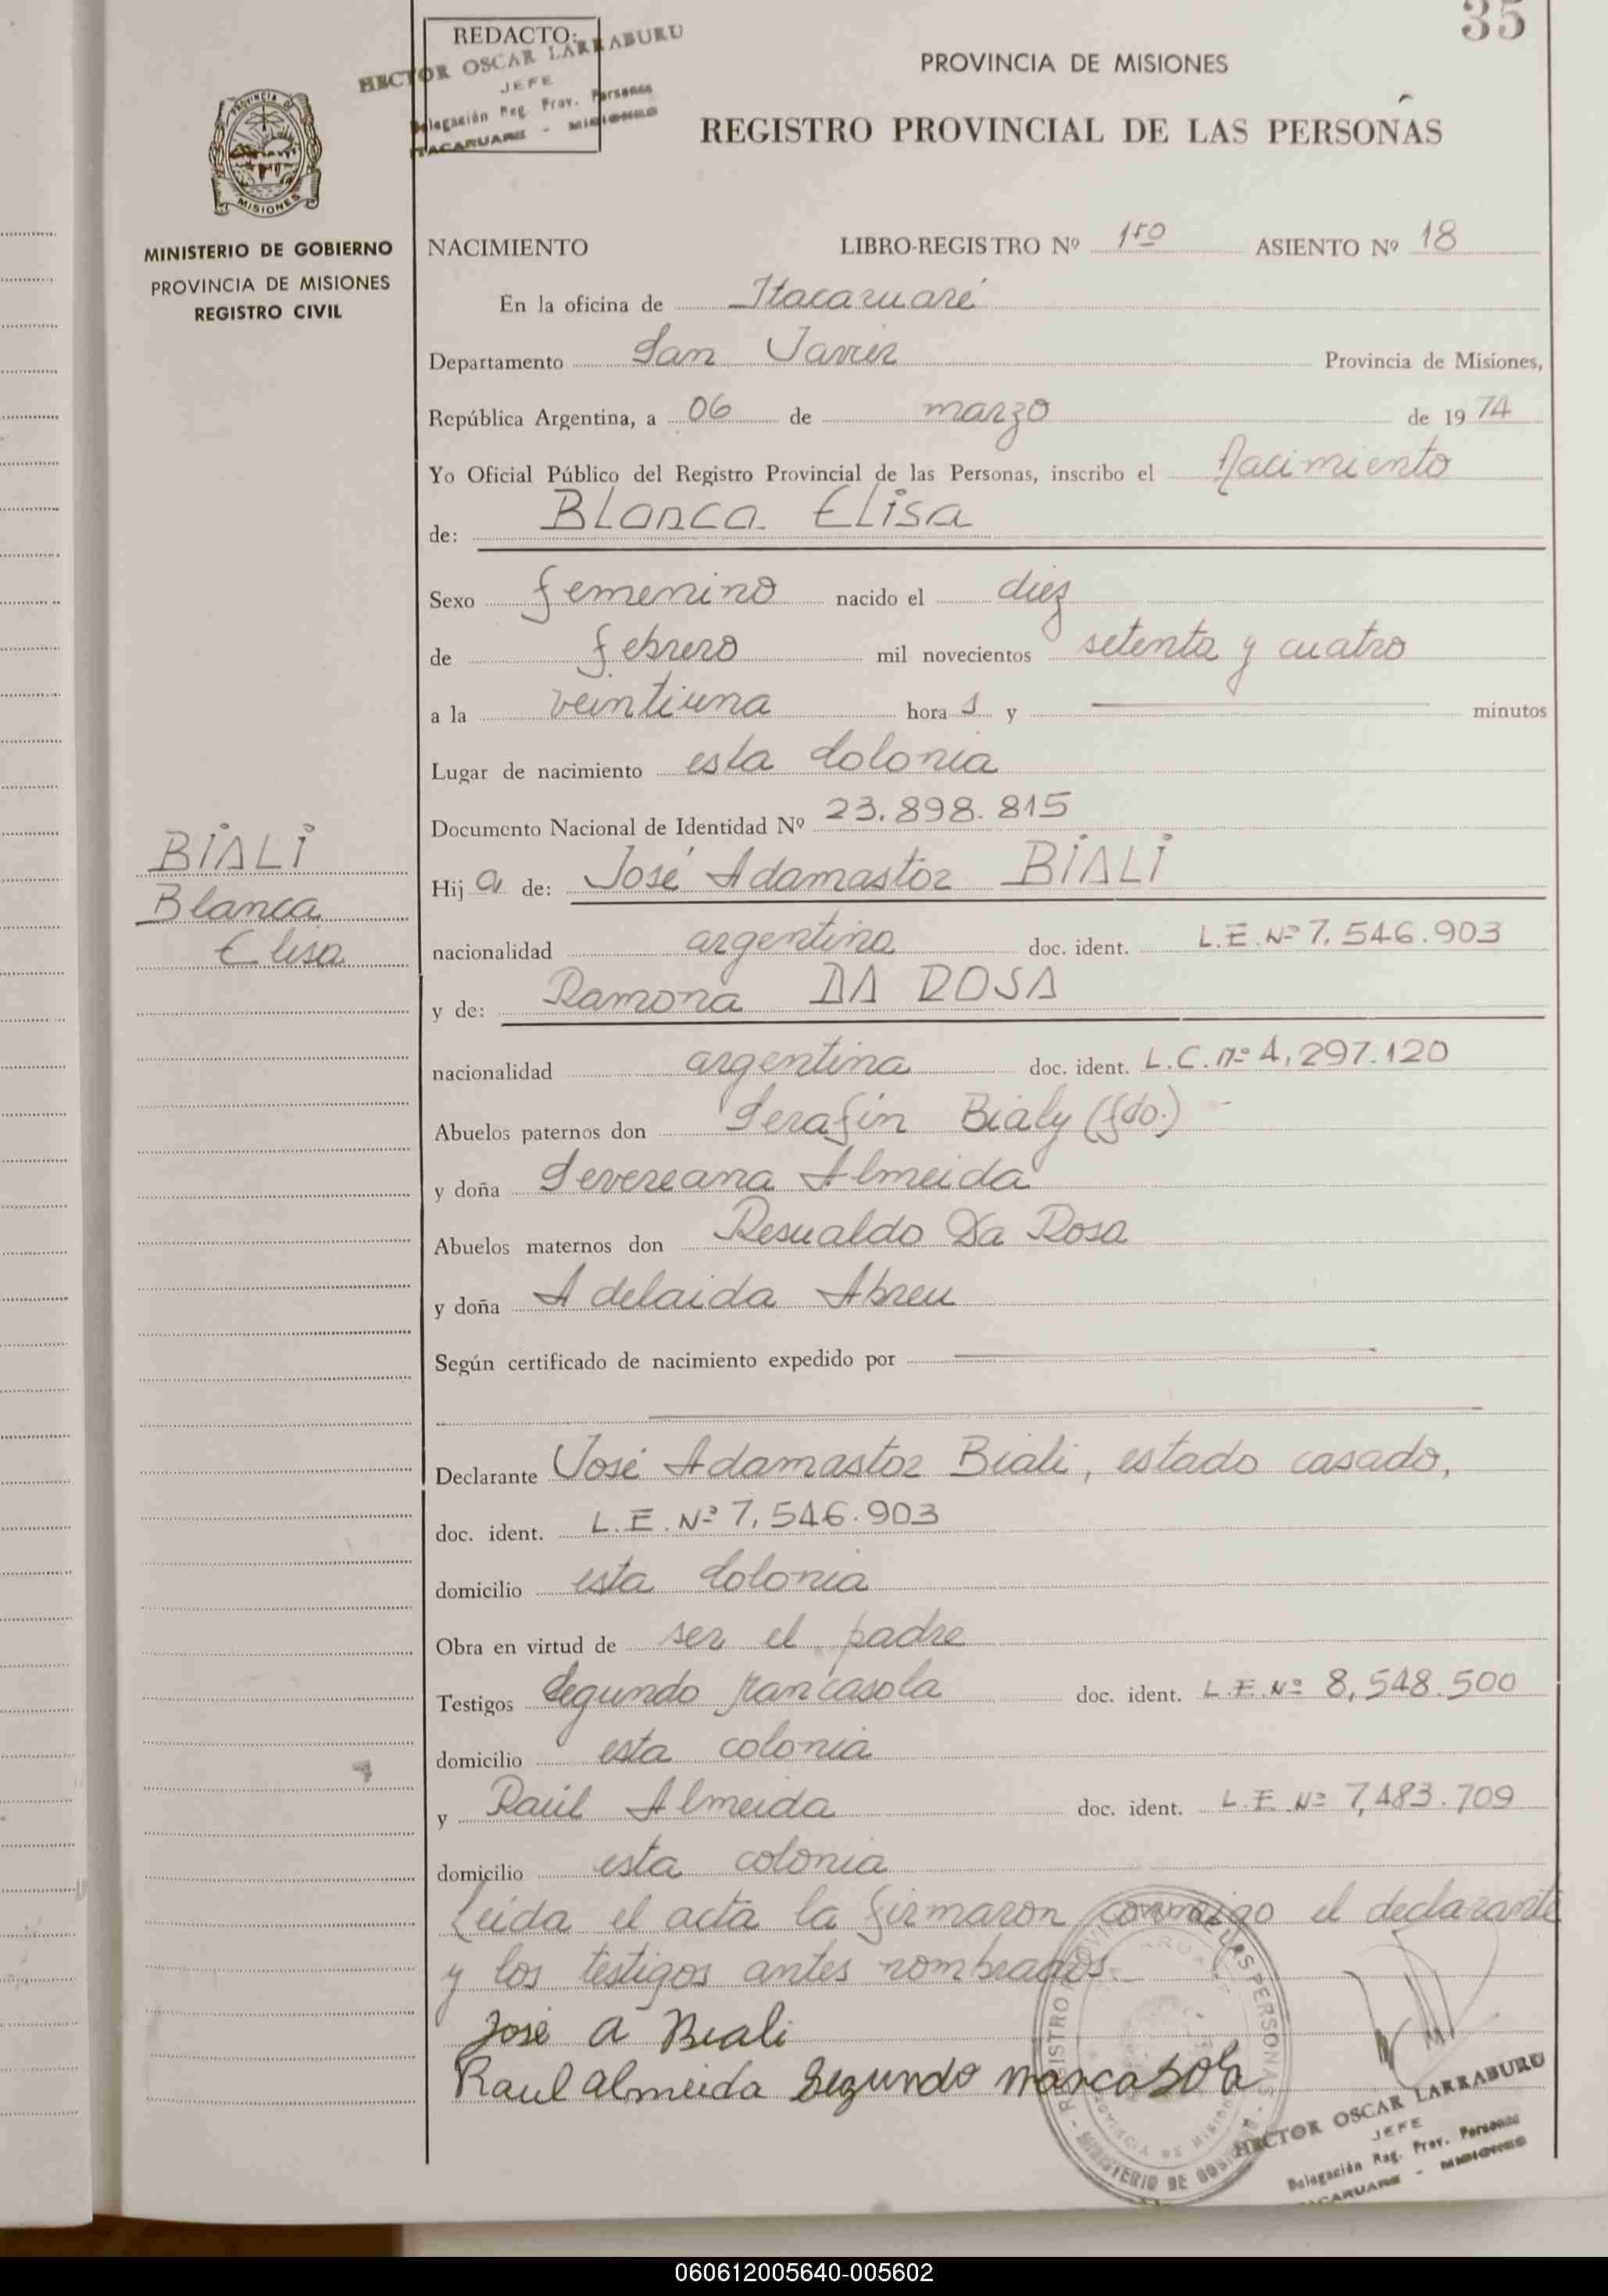 35
REDACTO:
HECTOR OSCAR LARRABURU
JEFE
Delegación Reg. Prov. Personas
ITACARUARE - MISIONES
PROVINCIA DE MISIONES
REGISTRO PROVINCIAL DE LAS PERSONAS
PROVINCIA DE
MISIONES
MINISTERIO DE GOBIERNO
PROVINCIA DE MISIONES
REGISTRO CIVIL
NACIMIENTO LIBRO-REGISTRO Nº 1ro ASIENTO Nº 18
En la oficina de Itacaruaré
Departamento San Javier Provincia de Misiones,
República Argentina, a 06 de marzo de 1974
Yo Oficial Público del Registro Provincial de las Personas, inscribo el Nacimiento
de: Blanca Elisa
Sexo femenino nacido el diez
de febrero mil novecientos setenta y cuatro
a la veintiuna hora s y minutos
Lugar de nacimiento esta Colonia
Documento Nacional de Identidad Nº 23.898.815
BIALI
Blanca
Elisa
Hija de: José Adamastor BIALI
nacionalidad argentina doc. ident. L.E. Nº 7.546.903
y de: Ramona DA ROSA
nacionalidad argentina doc. ident. L.C. nº 4,297.120
Abuelos paternos don Serafin Bialy (fdo.)
y doña Severeana Almeida
Abuelos maternos don Resualdo Da Rosa
y doña Adelaida Abreu
Según certificado de nacimiento expedido por
Declarante José Adamastor Biali, estado casado,
doc. ident. L.E. Nº 7,546.903
domicilio esta Colonia
Obra en virtud de ser el padre
Testigos Segundo doc. ident. L.E. Nº 8,548.500
domicilio esta colonia
y Raúl Almeida doc. ident. L.E Nº 7,483.709
domicilio esta colonia
Leida el acta la firmaron conmigo el declarante
y los testigos antes nombrados.
José A Biali
Raul almeida Segundo
HECTOR OSCAR LARRABURU
JEFE
Delegación Reg. Prov. Personas
ITACARUARE - MISIONES
060612005640-005602